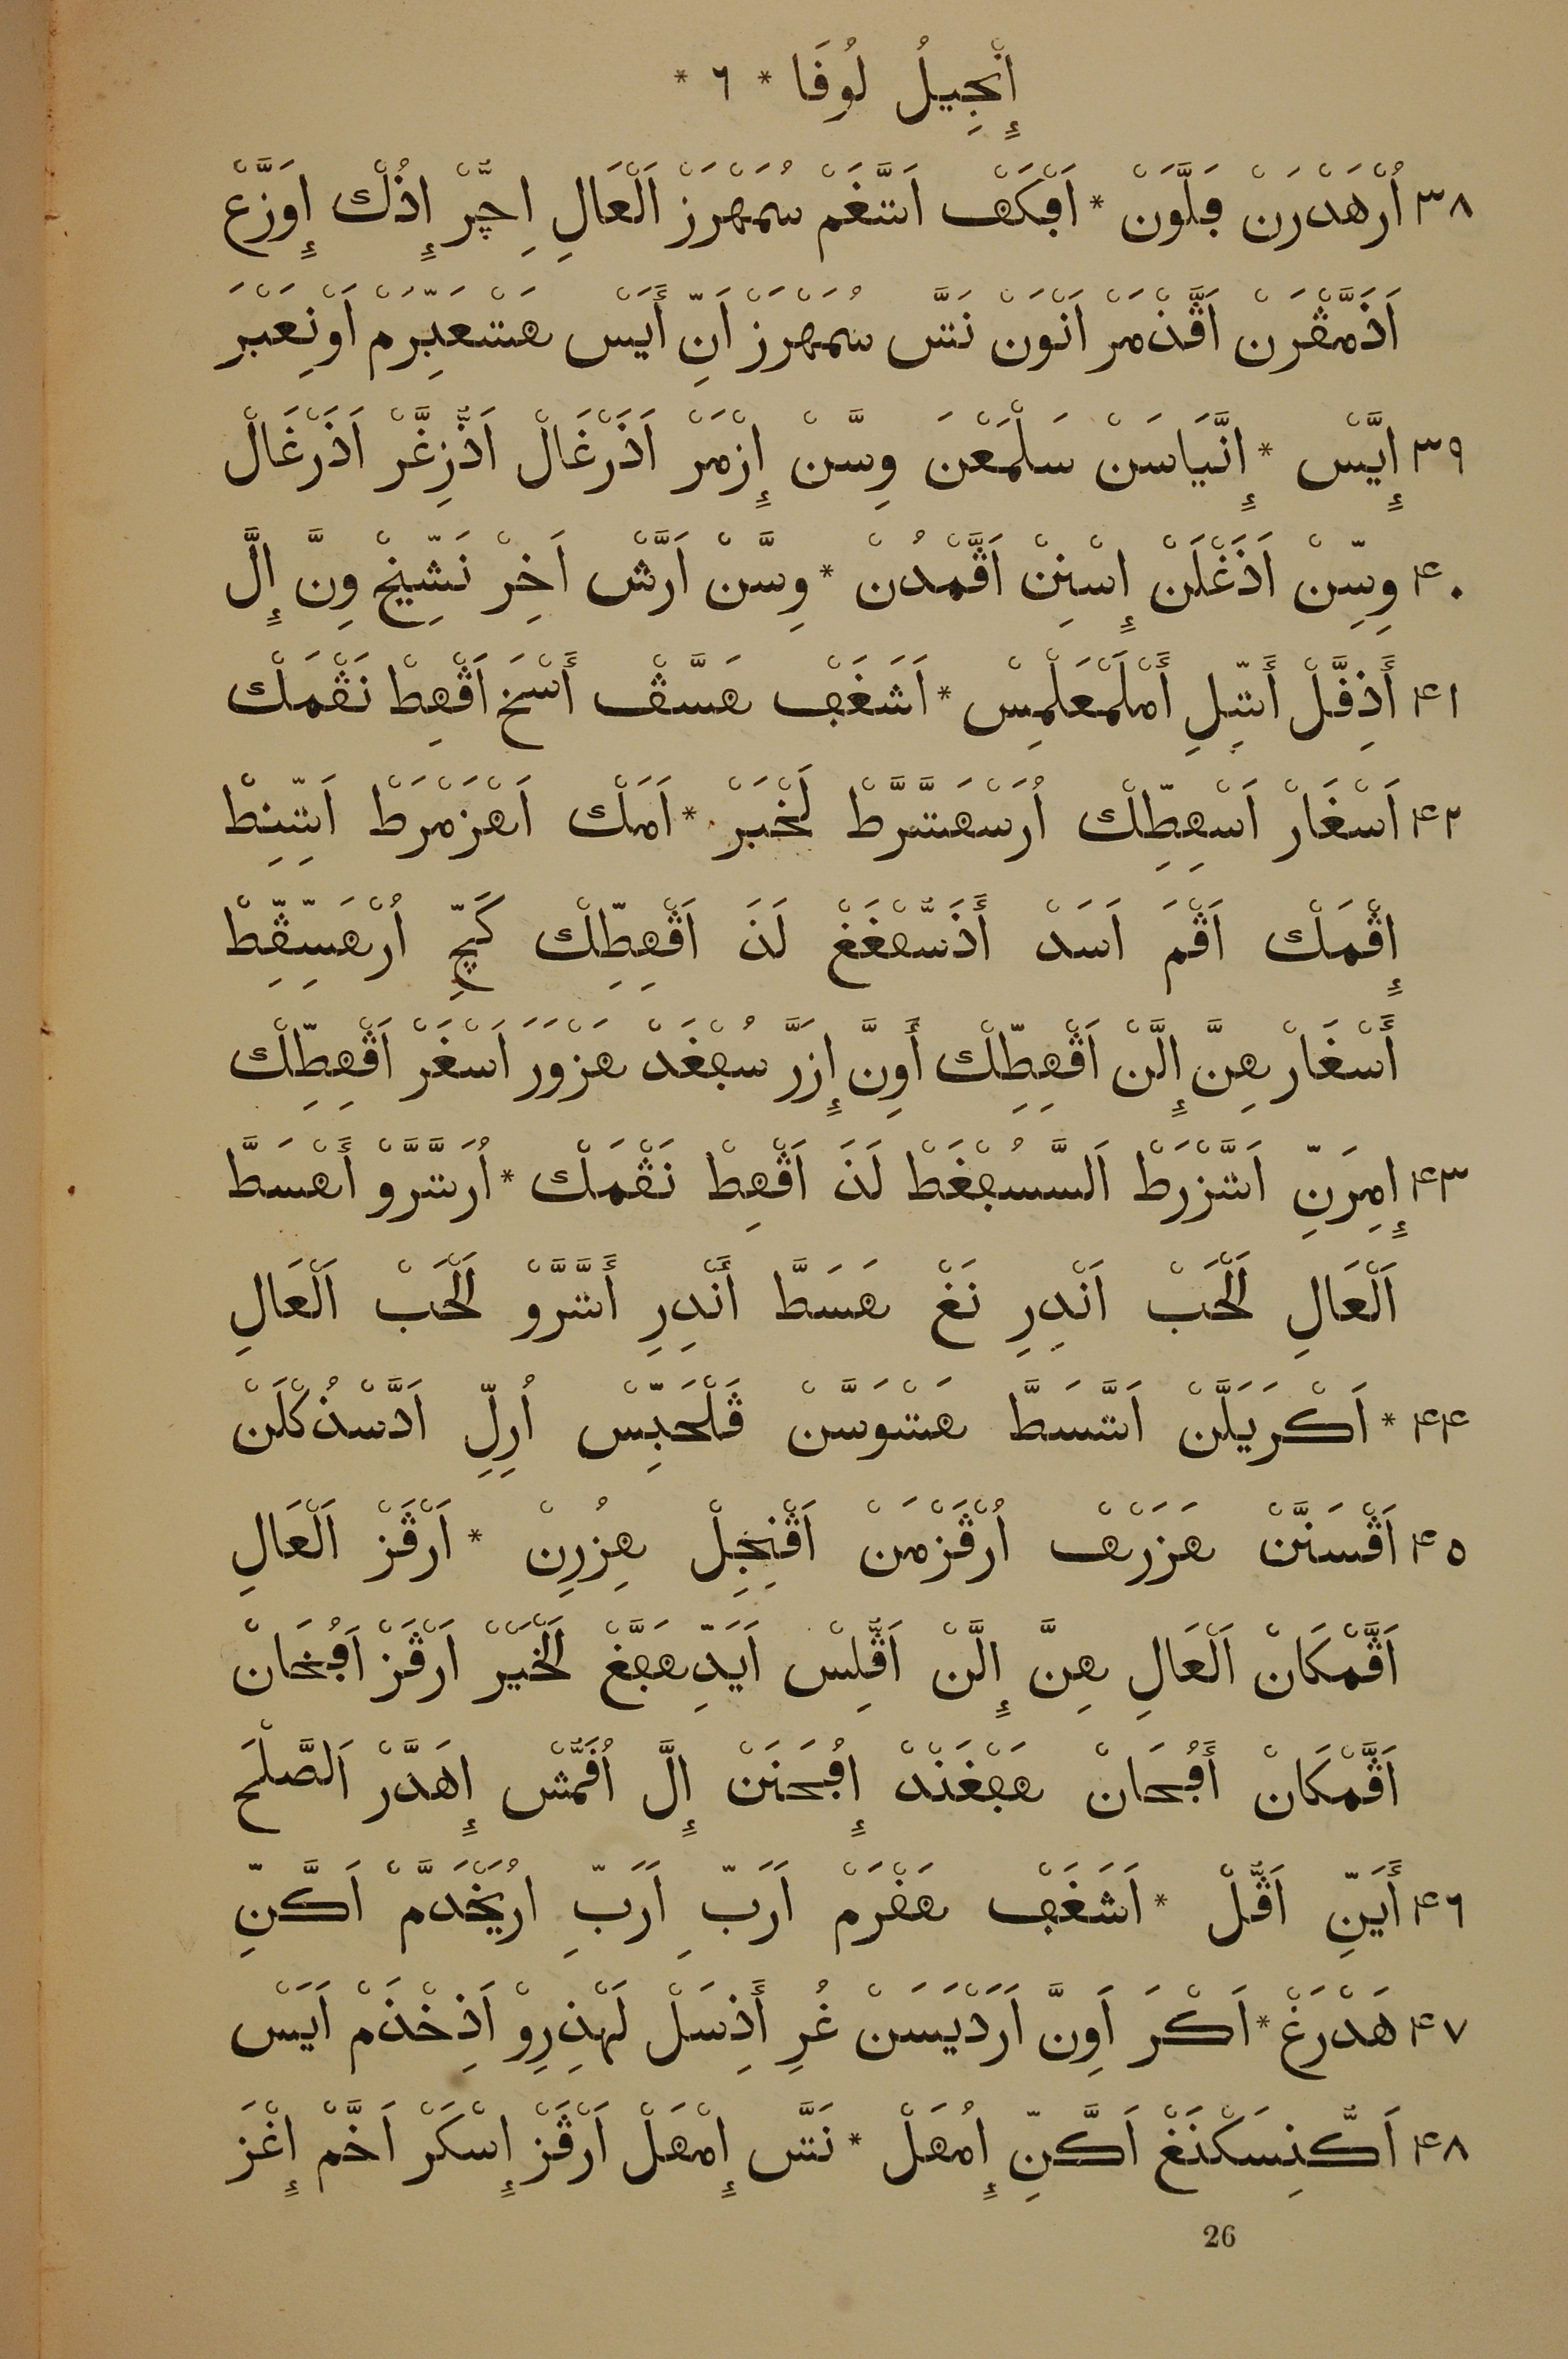 إِنْجِيلُ لُوقَا * ٦ *
٣٨ اُرْهَدْرَنْ فَلَّوَنْ * اَفْكَهْ اَتَّغَمْ سُمَهْرَزْ اَلْعَالِ اِچُّرْ إِذُلْكْ إِوَزَّعْ
اَذَمَّڤْرَنْ اَڤَّذْمَرْ اَنْوَنْ نَتَّسْ سُمَهْرَزْ اَنِّ أَيَسْ هَتْعَبِّرُمْ اَوَنِعَبْرَ
٣٩ إِيَّسْ * إِنَّيَاسَنْ سَلْمَعْنَ وِسَّنْ إِزْمَرْ اَذَرْغَالْ اَذِّزِغَّرْ اَذَرْغَالْ
٤٠ وِسِّنْ اَذَغْلَنْ إِسْنِنْ اَڤَّمْدُنْ * وِسَّنْ اَرَّشْ اَخِرْ نَشِّيخْ وِنَّ إِلَّ
٤١ أَذِفَّلْ أَتِّلِ أَمْلَمْعَلْمِسْ * اَشَغَفْ هَسَّڤْ أَسْخَ اَڤْهِطْ نَڤْمَلْكْ
٤٢ اَسْغَارْ اَسْهِطِّلْكْ اُرَسْهَتَّرَّطْ لَخْبَرْ * اَمَلْكْ اَهْزَمْرَطْ اَتِّنِطْ
إِڤْمَلْكْ اَڤْمَ اَسَدْ أَذَسُّهْغَغْ لَذَ اَڤْهِطِّلْكْ كَچِّ اُرْهَسِّڤِّطْ
أَسْغَارْ هِنَّ إِلَّنْ اَڤْهِطِّلْكْ أَوِنَّ إِزَرَّ سُفْغَدْ هَزْوَرَ اَسْغَرْ اَڤْهِطِّلْكْ
٤٣ إِمِرَنِّ اَتَّزْرَطْ اَلسَّسُفْغَطْ لَذَ اَڤْهِطْ نَڤْمَلْكْ * اُرَتَّرَّوْ أَهْسَطَّ
اَلْعَالِ لْحَبْ اَنْدِرِ نَغْ هَسَطَّ أَنْدِرِ أَتَّرَّوْ لْحَبْ اَلْعَالِ
٤٤ * اَكْرَيَلَّنْ اَتَّسَطَّ هَتْوَسَّنْ ڤَلْحَبِّسْ اُرِلِّ اَدَّسْذُكْلَنْ
٤٥ اَڤْسَنَّنْ هَزَرْهْ اُرْڤَزْمَنْ اَڤْنِجِلْ هِزُرِنْ * اَرْڤَزْ اَلْعَالِ
اَڤَّمْكَانْ اَلْعَالِ هِنَّ إِلَّنْ اَڤُّلِسْ اَيَدِّهَفَّغْ لْخَيْرْ اَرْڤَزْ اَفُحَانْ
اَڤَّمْكَانْ أَفُحَانْ هَفْغَنْدْ إِفُحَنَنْ إِلَّ اُڤَمُّشْ إِهَدَّرْ اَلصَّلْحَ
٤٦ أَيَنِّ اَڤُّلْ * اَشَغَفْ هَقْرَمْ اَرَبِّ اَرَبِّ اُرْيَخَدَّمْ اَكَّنِّ
٤٧ هَدْرَغْ * اَكْرَ اَوِنَّ اَرَدْيَسَنْ غُرِ أَذِسَلْ لَهْذِرِوْ اَذِخْذَمْ اَيَسْ
٤٨ اَكُّنِسَكْنَغْ اَكَّنِّ إِمُهَلْ * نَتَّسْ إِمْهَلْ اَرْڤَزْ إِسْكَرْ اَخَّمْ إِغْزَ
26